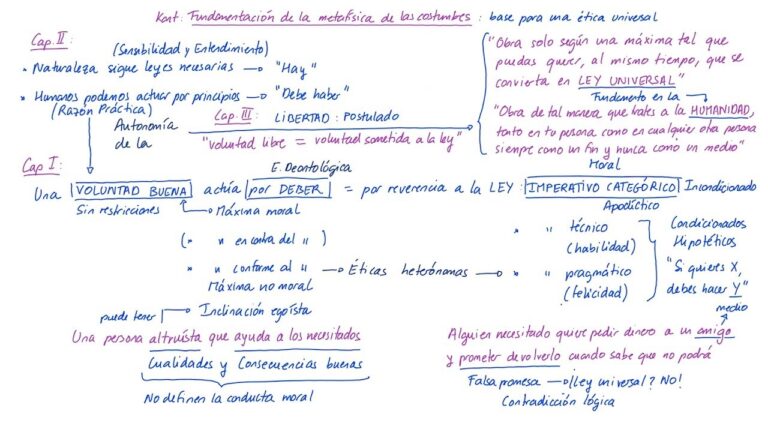 Kant: Fundamentación de la metafísica de las costumbres: base para una ética universal
Cap. II:
(Sensibilidad y Entendimiento)
* Naturaleza sigue leyes necesarias → "Hay"
* Humanos podemos actuar por principios → "Debe haber"
(Razón Práctica)
Autonomía de la
Cap. III: LIBERTAD: Postulado
"voluntad libre = voluntad sometida a la ley"
"Obra solo según una máxima tal que
puedas querer, al mismo tiempo, que se
convierta en LEY UNIVERSAL"
Fundamento en la
"Obra de tal manera que trates a la HUMANIDAD,
tanto en tu persona como en cualquier otra persona
siempre como un fin y nunca como un medio"
Cap I:
E. Deontológica
Moral
Una VOLUNTAD BUENA actúa por DEBER = por reverencia a la LEY: IMPERATIVO CATEGÓRICO Incondicionado
Sin restricciones
Máxima moral
Apodíctico
(* " en contra del " )
* " conforme al " → Éticas heterónomas →
Máxima no moral
* " técnico
(habilidad)
* " pragmático
(felicidad)
Condicionados
Hipotéticos
"Si quieres X,
debes hacer Y"
medio
puede tener → Inclinación egoísta
Una persona altruísta que ayuda a los necesitados
Cualidades y Consecuencias buenas
No definen la conducta moral
Alguien necesitado quiere pedir dinero a un amigo
y prometer devolverlo cuando sabe que no podrá
Falsa promesa → ¿Ley universal? No!
Contradicción lógica